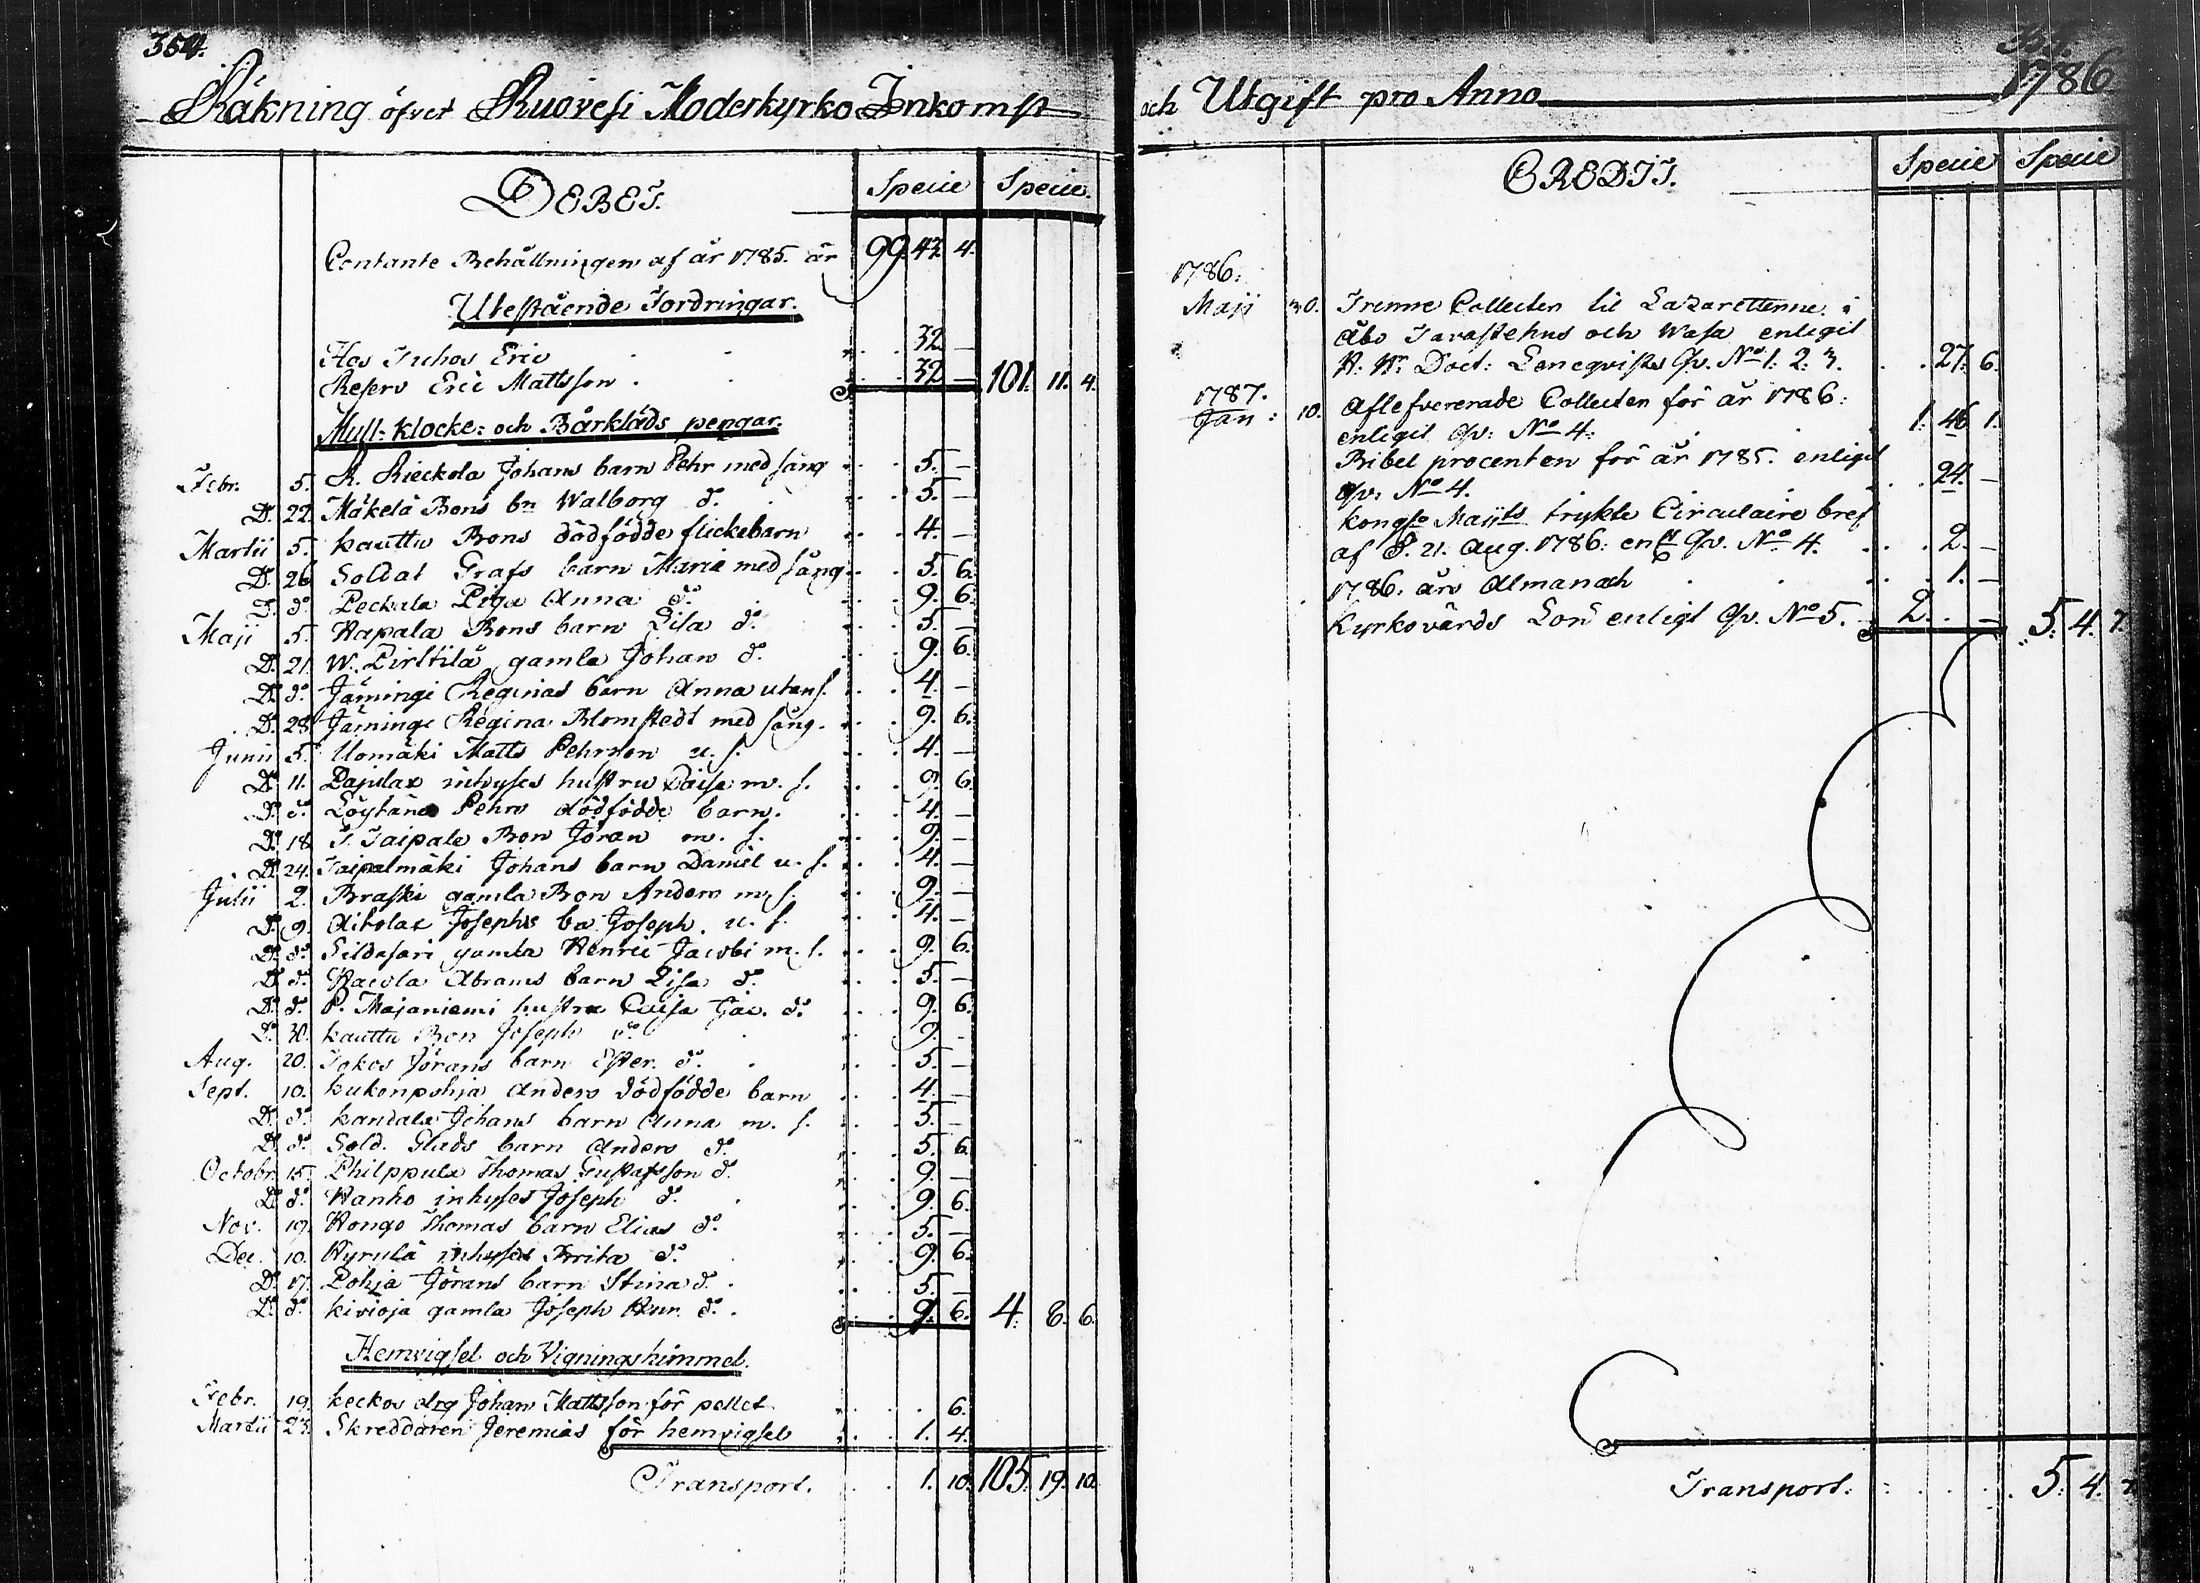 354.
Räkning öfver Ruovesi Moderkyrko Inkomst
DEBET. Specie Specie.
Contante Behållningen af år 1785. är 99. 43. 4.
Utestående Fordringar.
Hos Juhos Eric . . 32 —
Resero Eric Mattsson . . 32 — 101. 11. 4.
Mull- klocke- och Bårkläds pengar.
Febr. 5. R. Rieckola Johans barn Pehr med sång . . 5. —
D. 22. Mäkelä Bons bn Walborg do. . . 5. —
Martii 5. Kauttu Bons dödfödde flickebarn . . 4. —
D. 26 Soldat Grafs barn Maria med sång . . 5. 6.
D. do. Peckala Piga Anna do. . . 9. 6.
Maji 5. Hapala Bons barn Lisa do. . . 5. —
D. 21. W. Pirttilä gamla Johan do. . . 9. 6.
D. do. Jämingi Reginas barn Anna utan s. . . 4. —
D. 28. Jäminge Regina Blomstedt med sång. . . 9. 6.
Junii 5. Uomäki Matts Pehrsson u. s. . . 4. —
D. 11. Pajulax inhyses hustru Caisa m. s. . . 9. 6.
D. do. Löytäne Pehrs dödfödde barn. . . 4. —
D. 18. T. Taipale Bon Göran m. s. . . 9. —
D. 24. Taipalmäki Johans barn Daniel u. s. . . 4. —
Julii 2. Braski gamla Bon Anders m. s. . . 9. —
D. 9. Aitolax Josephs bn Joseph. u. s. . . 4. —
D. do. Sildasari gamla Henric Jacobi m. s. . . 9. 6.
D. do. Hacola Abrams barn Lisa do. . . 5. —
D. do. P. Majaniemi hustru Caisa Jac. do. . . 9. 6.
D. 30. Kauttu Bon Joseph do. . . 9. -
Aug. 20. Jokos Görans barn Ester. do. . . 5. —
Sept. 10. Kukonpohja Anders dödfödde barn . . 4. —
D. do. Kandala Johans barn Anna m. s. . . 5. —
D. do. Sold. Glads barn Anders do. . . 5. 6.
Octobr. 15. Philppula Thomas Gustafsson do. . . 9. —
D. do. Hanho inhyses Joseph do. . . 9. 6.
Nov. 19. Hongo Thomas barn Elias do. . . 5. —
Dec. 10. Hyrulä inhyses Brita do. . . 9. 6.
D. 17. Pohja Görans barn Stina do. . . 5. —
D. do. Kivioja gamla Joseph do. . . 9. 6. 4. 8. 6.
Hemvigsel och Vigningshimmel.
Febr. 19. Keckos drg Johan Mattsson för pellet . . 6.
Martii 23. Skreddaren Jeremias för hemvigsel . . 1. 4.
Transport. . . 1. 10. 105. 19. 10.
och Utgift pro Anno 1786
CREDIT. Specie Specie
1786.
Maji 30. Trenne Collecten til Lazaretterne i
Åbo Tavastehus och Wasa enligit
H. Hr. Doct: Leneqvists Qv. No 1: 2: 3. . . 27. 6.
1787.
Jan: 10. Aflefvererade Collecten för år 1786:
enligit Qv: No 4. . . 1. 46 1.
Bibel procenten för år 1785. enligit
Qv: No 4. . . 24. —
Kongl. Maijts trykte Circulaire bref
af d. 21. Aug. 1786: enl Qv. No 4. . . 2. —
1786. års Almanach . . 1. —
Kyrkovärds Lön enligt Qv. No 5. 2. . — 5. 4. 7.
Transport. . . 5. 4. 7